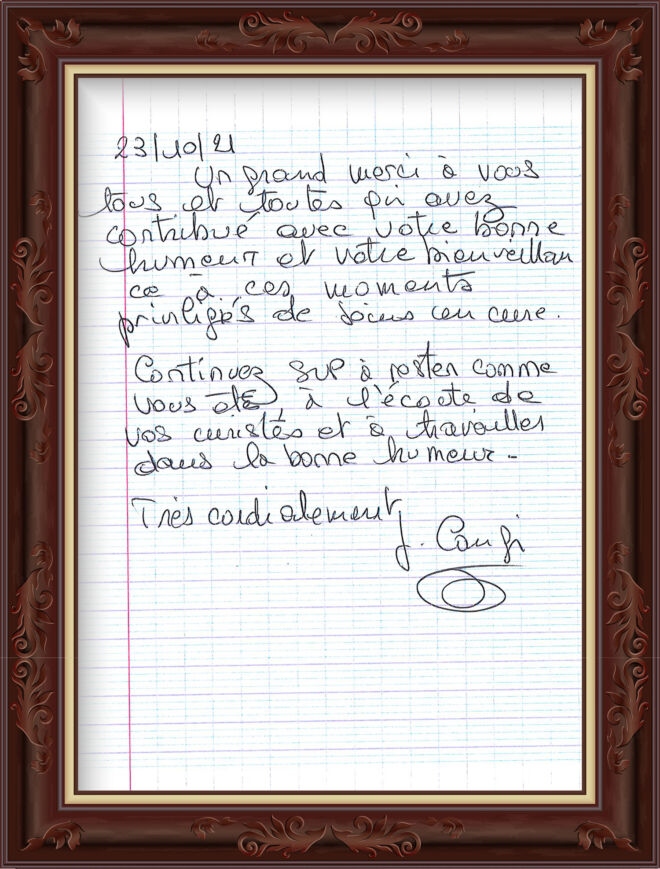 23/10/21
Un grand merci à vous
tous et toutes qui avez
contribué avec votre bonne
humeur et votre bienveillan
ce à ces moments
privilégiés de soins en cure.
Continuez SVP à rester comme
vous êtes, à l'écoute de
vos curistes et à travailler
dans la bonne humeur -
Très cordialement
J.